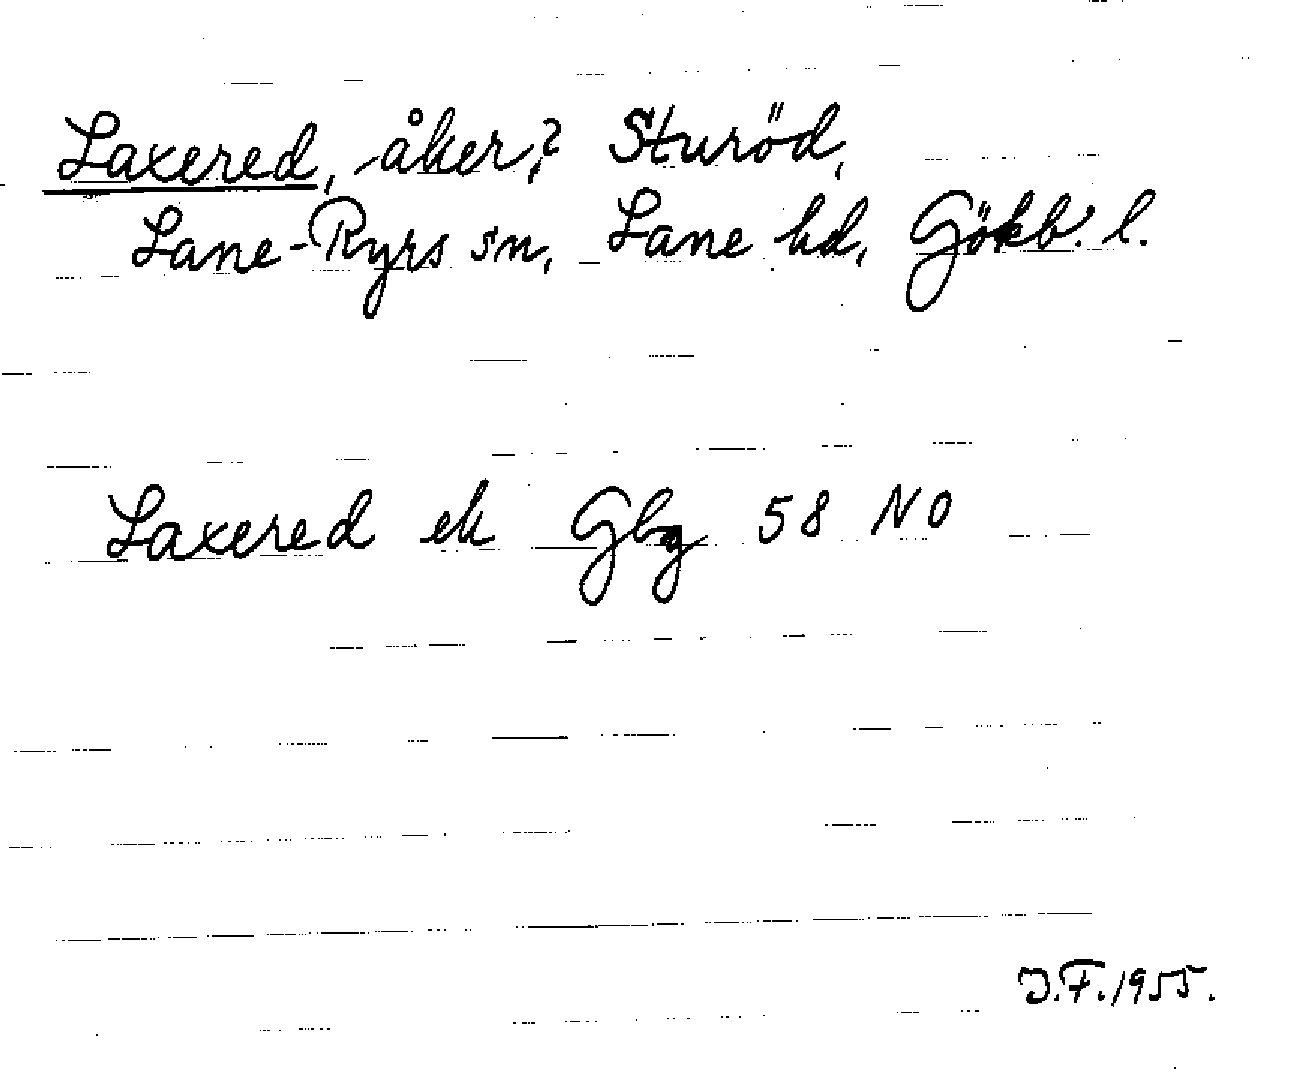 Laxered, åker,? Sturöd,
Lane-Ryrs sn, Lane hd, Gökb. l.
Laxered ek Gbg 58 NO
J.F. 1955.